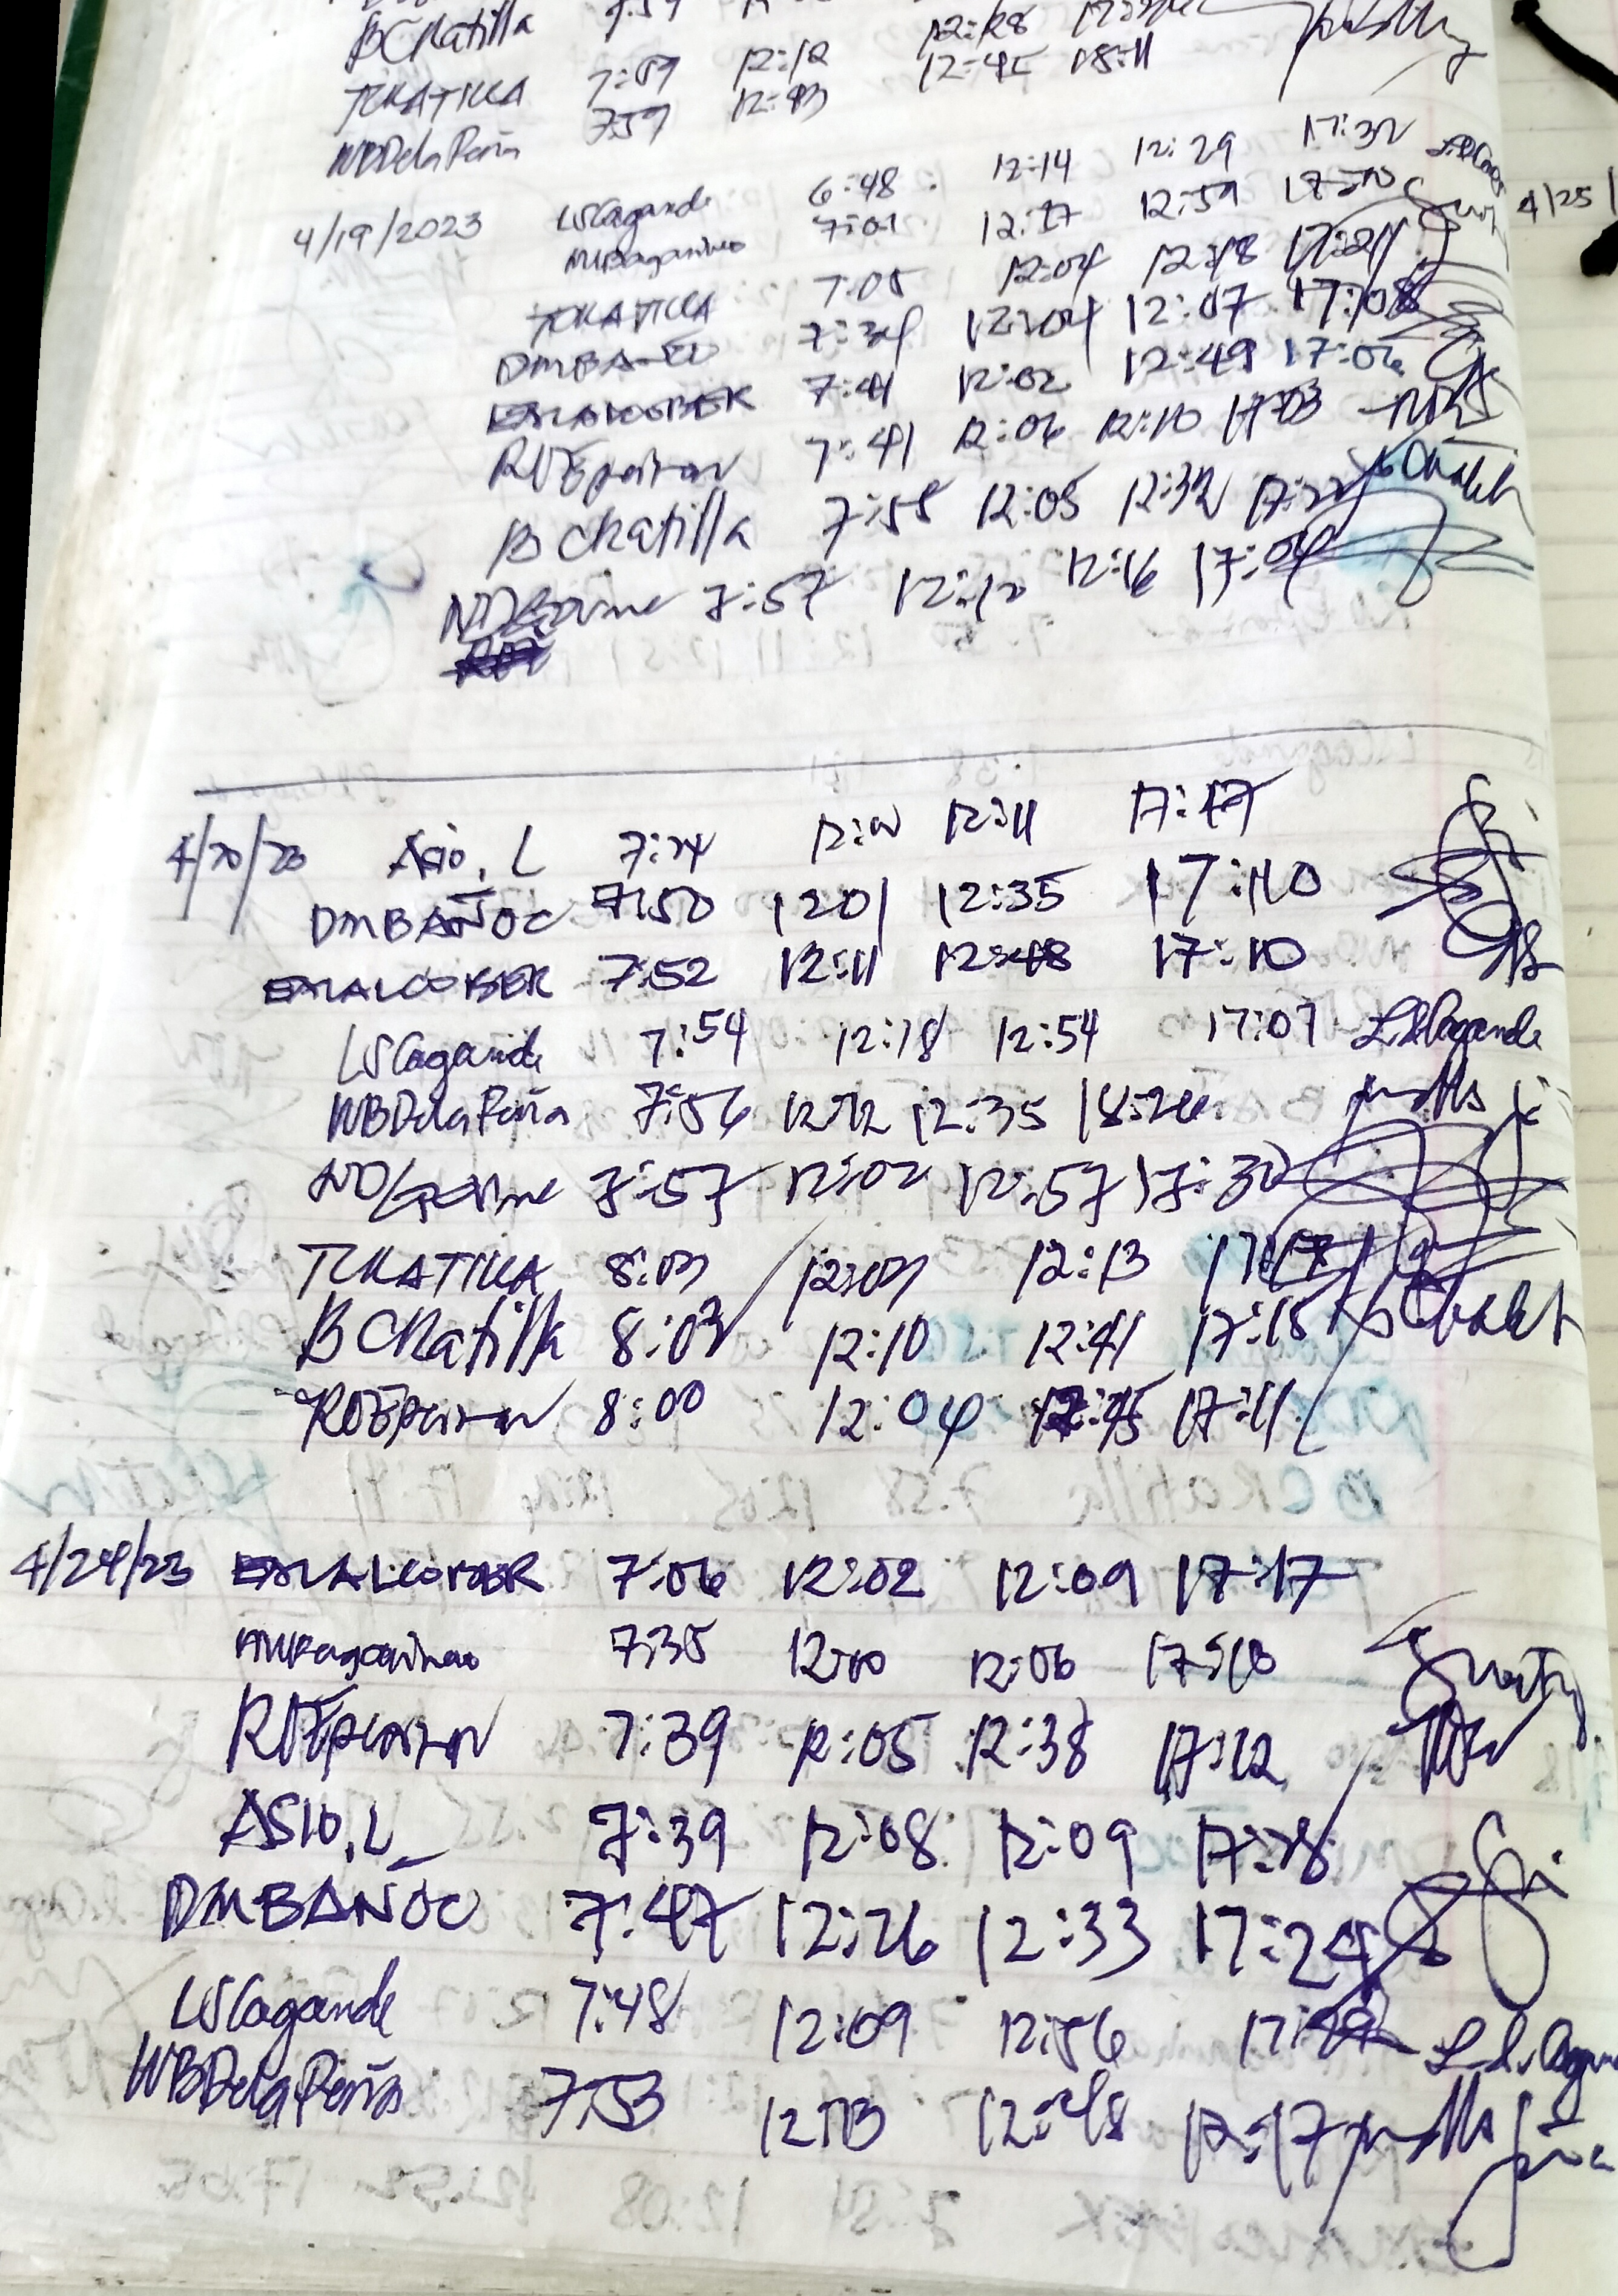 BCRatilla 12:28
TCRATILLA 7:59 12:12 12:45 18:11
WBDelaPeña 7:59 12:43
4/19/2023 LSCagande 6:48 12:14 12:29 17:32
7:01 12:17 12:59
TCRATILLA 7:05 12:04 12:18 17:21
DMBAÑOC 7:34 12:04 12:07 17:08
EMALCOBER 7:41 12:02 12:49 17:06
7:41 12:06 12:10 17:03
BCRatilla 7:55 12:05 12:32 17:22
7:57 12:12 12:16 17:04
4/25
4/20/23 Asio, L 7:24 12:11 17:47
DMBAÑOC 7:50 1201 12:35 17:10
EMALCOBER 7:52 12:11 12:48 17:10
LSCagande 7:54 12:18 12:54 17:07 LSCagande
WBDelaPeña 7:56 12:12 12:35 18:26
7:57 12:02 12:57 17:32
TCRATILLA 8:03 12:03 12:13
BCRatilla 8:03 12:10 12:41 17:15
8:00 12:04 12:45 17:11
4/24/23 EMALCOBER 7:06 12:02 12:09 17:17
7:35 12:10 12:06 17:10
7:39 12:05 12:38 17:12
ASIO, L 7:39 12:08 12:09 17:28
DMBAÑOC 7:47 12:26 12:33 17:24
LSCagande 7:48 12:09 12:56
WBDelaPeña 7:53 12:13 12:48 17:17